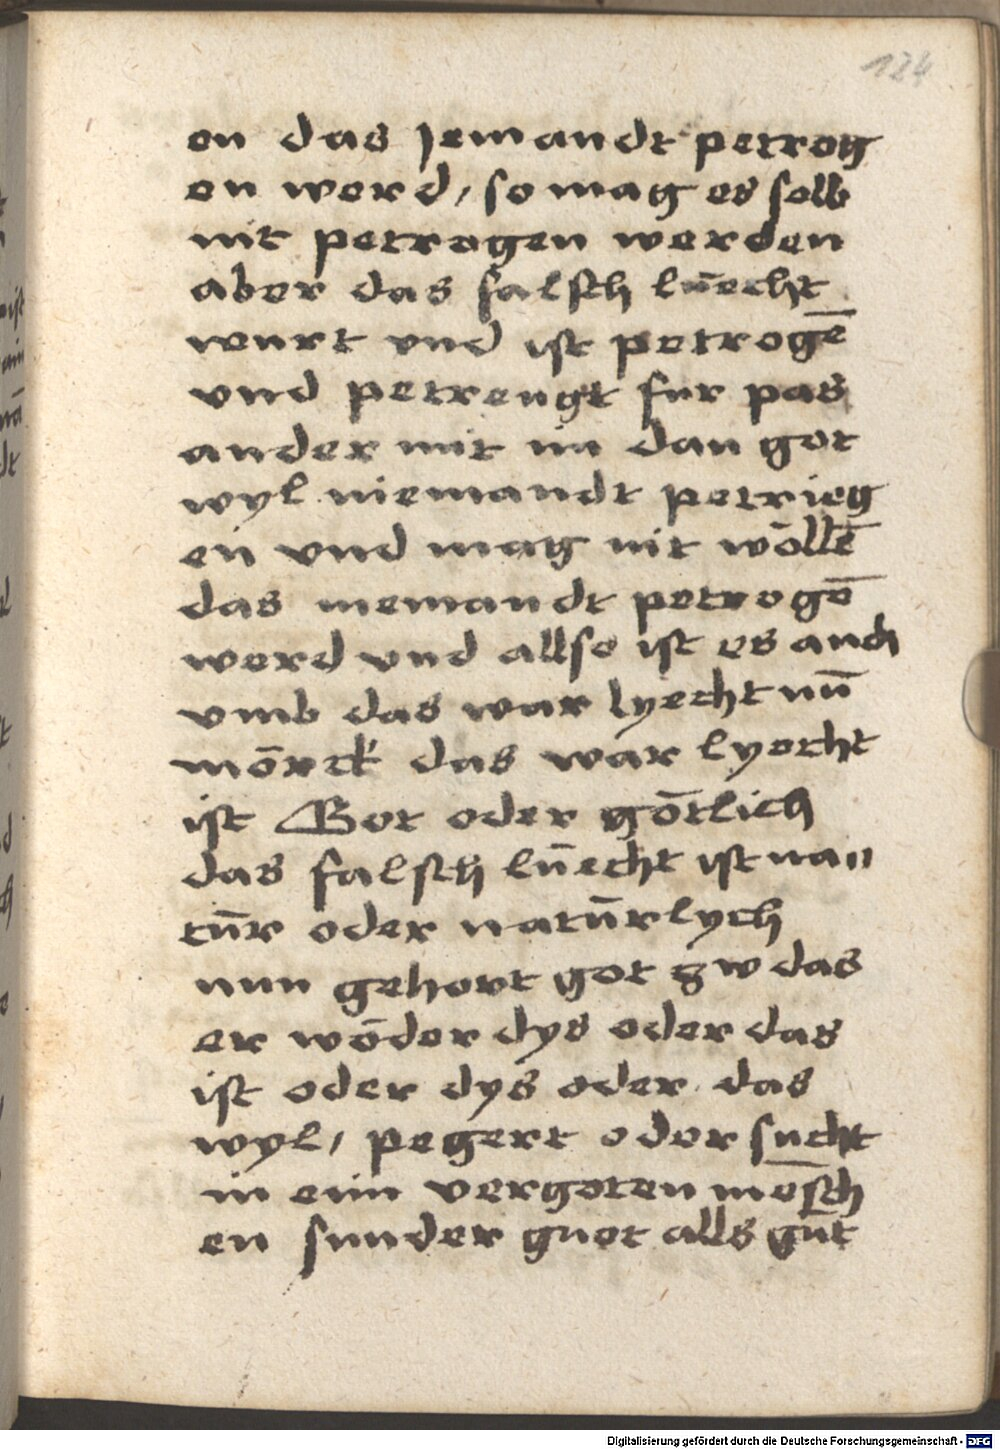 124
en das jemandt petrog
en werd, so mag es selb
nit petrogen werden
aber das falsch lūecht
wurt vnd ist petrogē
vnd petreugt fur pas
ander mit im dan got
wyl niemandt petrieg
en vnd mag nit wollē
das niemandt petrogē
werd vnd allso ist es auch
vmb das war lyecht nū
mōrck das war lyecht
ist Got oder gōtlich
das falsch lūecht ist na〃
tūr oder natūrlych
nun gehort got zw das
er wōder dys oder das
ist oder dys oder das
wyl, pegert oder sucht
in eim vergoten mēsch
en sunder guot alls gūt
Digitalisierung gefördert durch die Deutsche Forschungsgemeinschaft - DFG